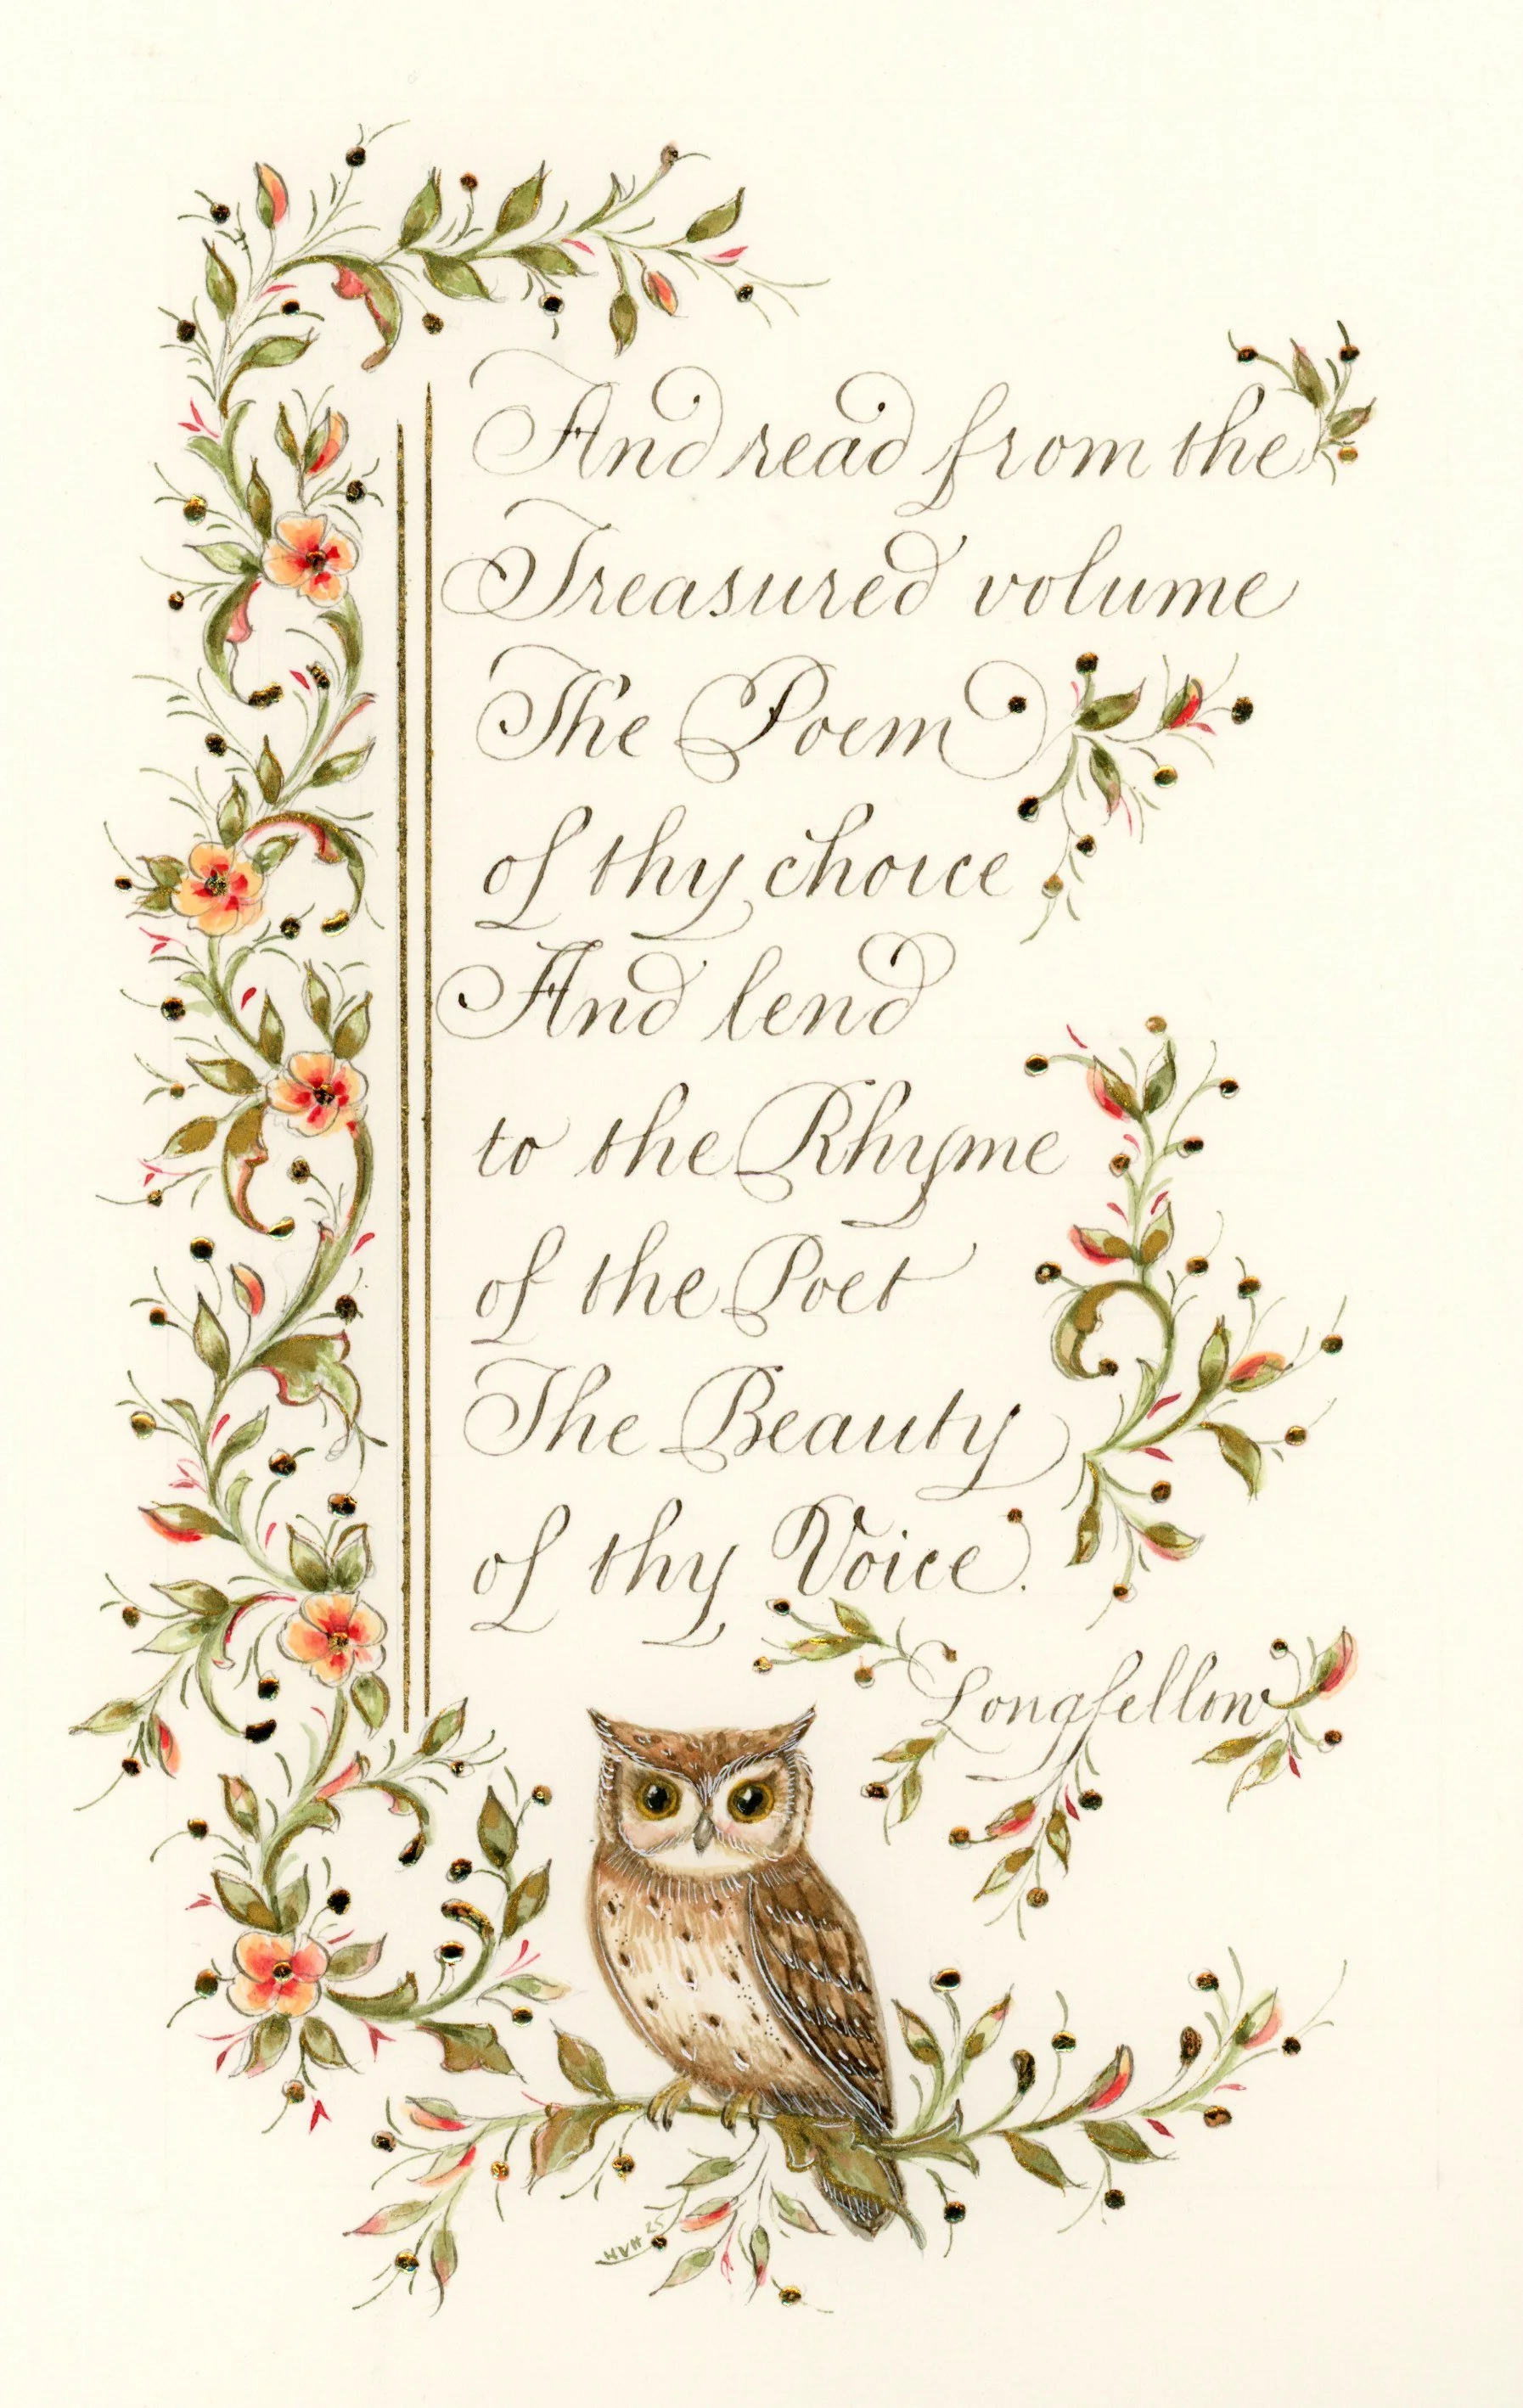 And read from the
Treasured volume
The Poem
of thy choice
And lend
to the Rhyme
of the Poet
The Beauty
of thy Voice.
Longfellow
HVH 25